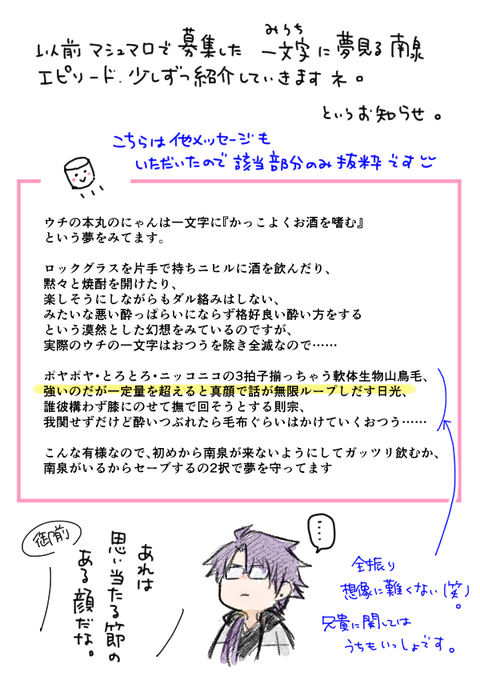 以前マシュマロで募集した 一文字に夢見る南泉
みうち
エピソード、少しずつ紹介していきますネ。
というお知らせ。
こちらは他メッセージも
いただいたので該当部分のみ抜粋です
ウチの本丸のにゃんは一文字に『かっこよくお酒を嗜む』
という夢をみてます。
ロックグラスを片手で持ちニヒルに酒を飲んだり、
黙々と焼酎を開けたり、
楽しそうにしながらもダル絡みはしない、
みたいな悪い酔っぱらいにならず格好良い酔い方をする
という漠然とした幻想をみているのですが、
実際のウチの一文字はおつうを除き全滅なので……
ポヤポヤ・とろとろ・ニッコニコの3拍子揃っちゃう軟体生物山鳥毛、
強いのだが一定量を超えると真顔で話が無限ループしだす日光、
誰彼構わず膝にのせて撫で回そうとする則宗、
我関せずだけど酔いつぶれたら毛布ぐらいはかけていくおつう……
こんな有様なので、初めから南泉が来ないようにしてガッツリ飲むか、
南泉がいるからセーブするの2択で夢を守ってます
御前
あれは
思い当たる節の
ある顔だな。
…
全振り
想像に難くない(笑)。
兄貴に関しては
うちもいっしょです。